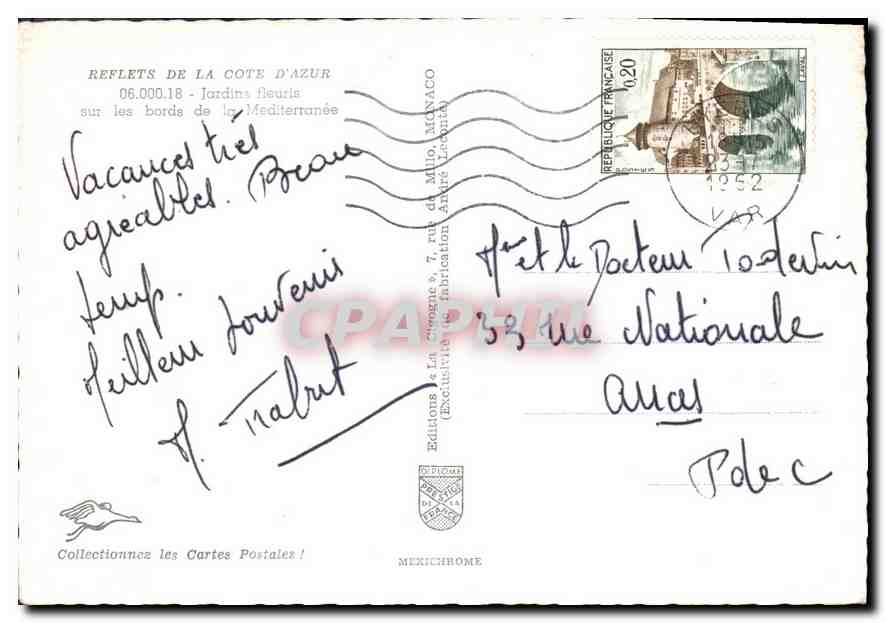 REFLETS DE LA COTE D'AZUR
06.000.18 - Jardins fleuris
sur les bords de la Mediterranée
Vacances très
agréables. Beau
temp.
Meilleur souvenir
M.
Editions « La Cigogne », 7, rue de Millo, MONACO
(Exclusivité de fabrication André Leconte)
REPUBLIQUE FRANÇAISE
0,20
POSTES
LAVAL
VAR
Mme et le Docteur
33 rue Nationale
Arras
P de C
CPAPHIL
DIPLOME
PRESTIGE
DE LA
FRANCE
Collectionnez les Cartes Postales !
MEXICHROME